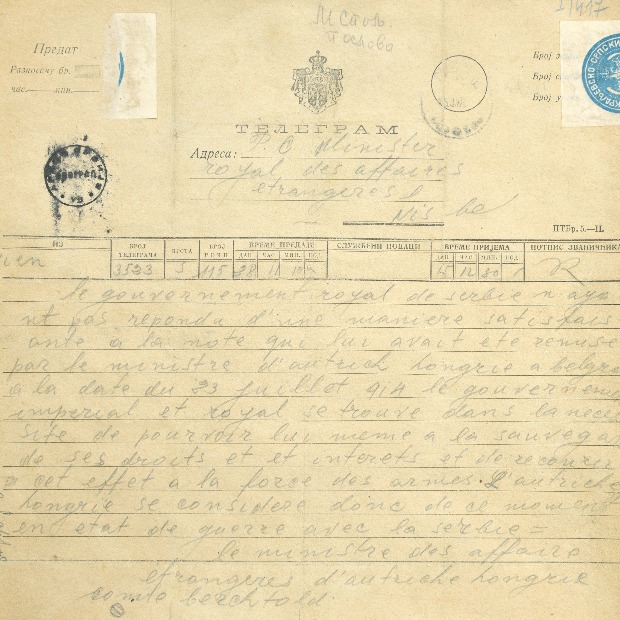 М Столб.
1/417
Предат
Разносачу бр.
час. мин.
Број
Број
Број
ТЕЛЕГРАМ
Адреса: P. O. Minister
royal des affaires
etrangeres
Nis be
ПТБр. 5.—II.
ИЗ БРОЈ ТЕЛЕГРАМА ВРСТА БРОЈ РЕЧИ ВРЕМЕ ПРЕДАЈЕ СЛУЖБЕНИ ПОДАЦИ ВРЕМЕ ПРИЈЕМА ПОТПИС ЗВАНИЧНИКА
ДАН ЧАС МИН. ДАН ЧАС МИН.
ien 3523 5 115 28 11 10 12 30 R
le gouvernement royal de serbie n ayo
nt pas repondu d'une maniere satisfais
ante a la note qui lui avait ete remise
par le ministre d'autrich hongrie a belgra
a la date du 23 juillot 914 le gouverneme
imperial et royal se trouve dans la neces
site de pourvoir lui meme a la sauvega
de ses droits et et interets et de recourir
a cet effet a la force des armes. L'autriche
hongrie se considere donc de ce moment
en etat de guerre avec la serbie =
le ministre des affaire
etrangeres d'autriche hongrie
comte berchtold.